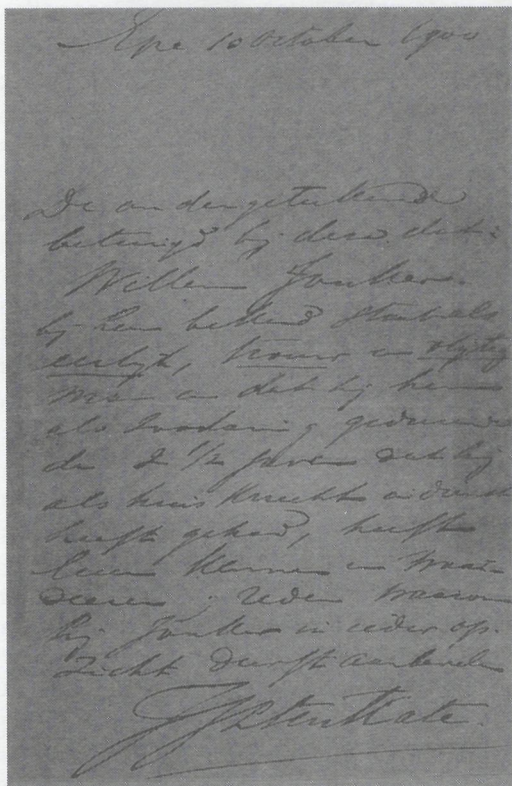 Epe 10 October 1900
De ondergeteekende
betuigd bij deze dat:
Willem Jonker.
bij hem bekend staat als
eerlijk, trouw en vlijtig
man en dat hij hem
als zoodanig gedurende
de 2 1/2 jaren dat hij
als huisknecht in dienst
heeft gehad, heeft
leeren kennen en waar-
deeren; reden waarom
hij Jonker in ieder op-
zicht durft aanbevelen
ten Kate.